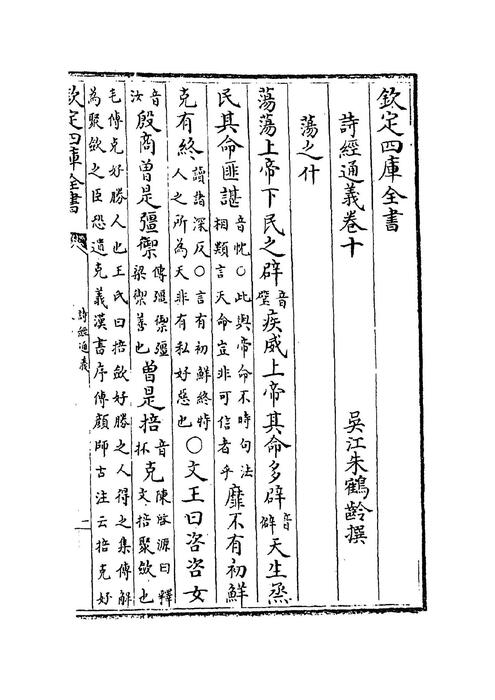 欽定四庫全書
詩經通義卷十
吳江朱鶴齡撰
蕩之什
蕩蕩上帝下民之辟音璧疾威上帝其命多辟音僻天生烝
民其命匪諶音忱○此與帝命不時句法相類言天命豈非可信者乎靡不有初鮮
克有終讀諸深反○言有初鮮終特人之所為天非有私好惡也○文王曰咨咨女
音汝殷商曾是彊禦傳彊禦彊梁禦善也曾是掊音抔克陳啓源曰釋文掊聚斂也
毛傳克好勝人也王氏曰掊斂好勝之人得之集傳解
為聚斂之臣恐遺克義漢書序傳顔師古注云掊克好
欽定四庫全書
詩經通義